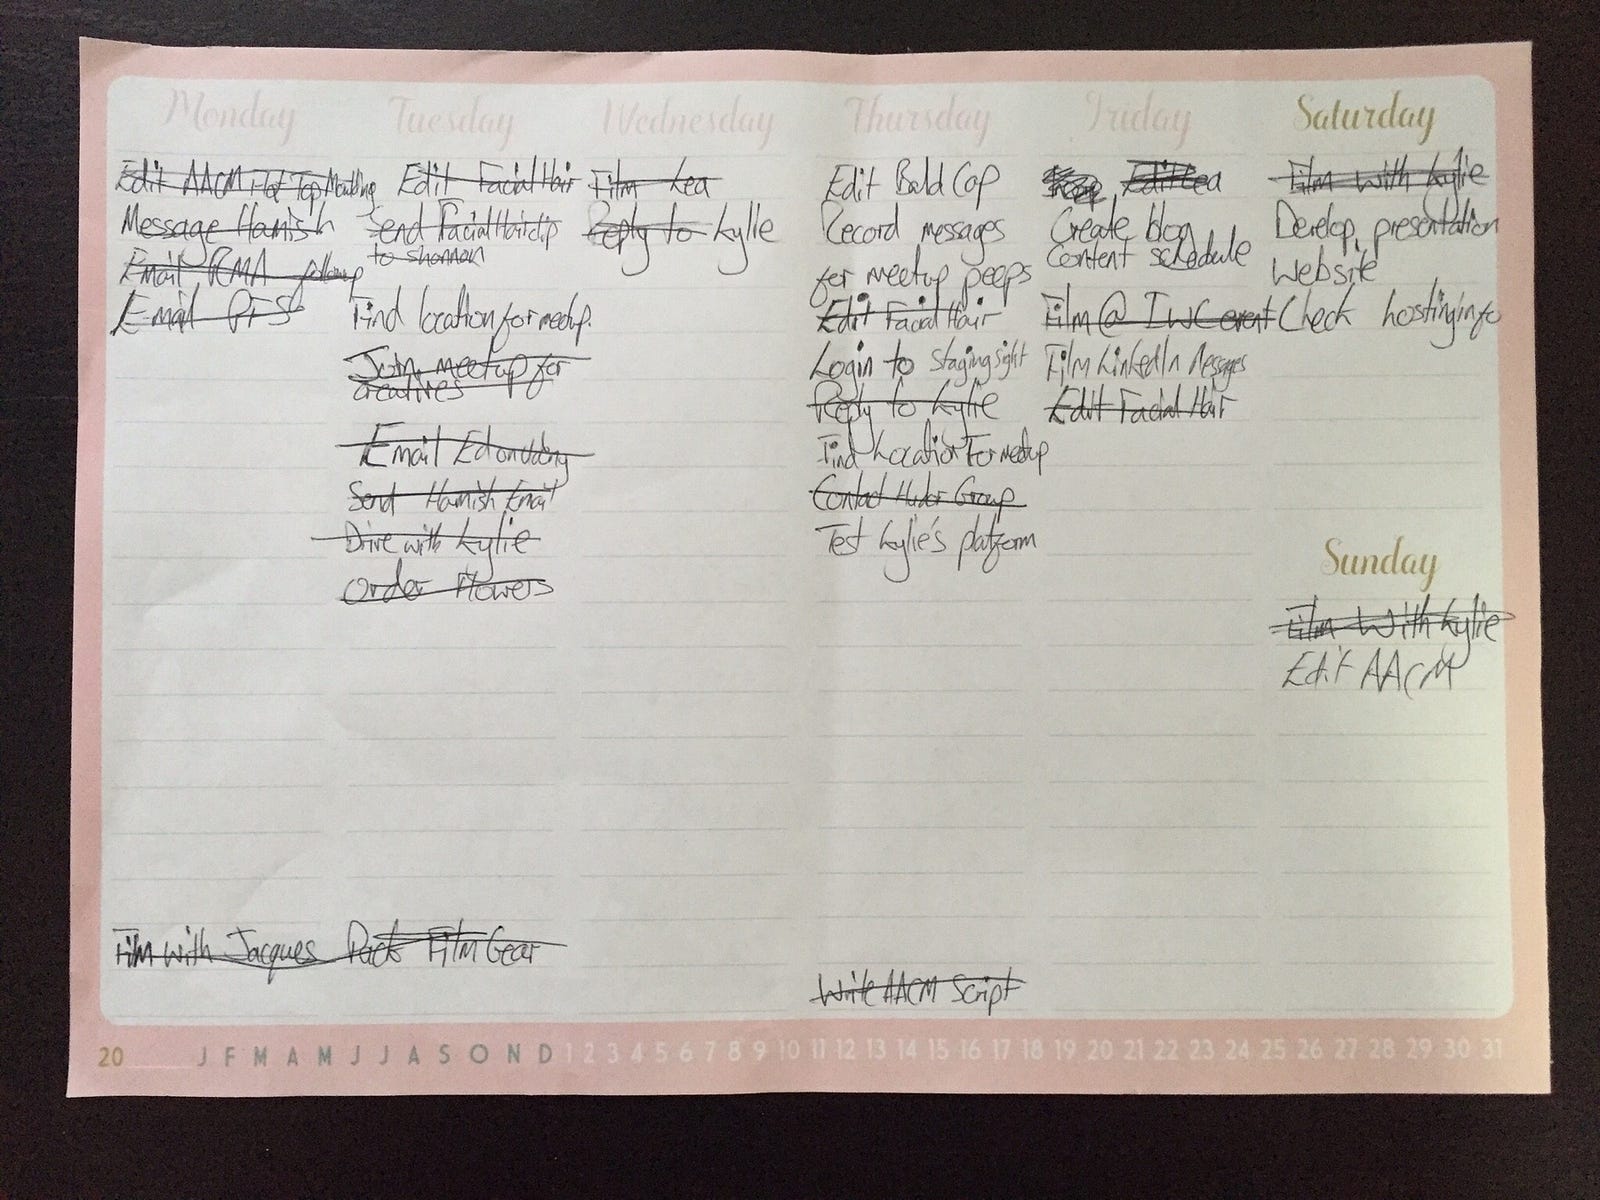 Monday
Edit AACM Hot Top Moulding
Message Hamish
Email RMA followup
Email
Film with Jacques
Tuesday
Edit Facial Hair
Send Facial Hair clip
to shannon
Find location for meetup.
Join meetup for
creatives
Email Ed on
Send Hamish Email
Drive with Kylie
Order Flowers
Pack Film Gear
Wednesday
Film Lea
Reply to Kylie
Thursday
Edit Bald Cap
Record messages
for meetup peeps
Edit Facial Hair
Login to Staging sight
Reply to Kylie
Find Location For meetup
Contact Group
Test Kylie's platform
Write AACM Script
Friday
Edit Lea
Create blog
Content schedule
Film @ IWC event
Film LinkedIn Messages
Edit Facial Hair
Saturday
Film with Kylie
Develop presentation
Website
Check hosting info
Sunday
Film With Kylie
Edit AACM
20 J F M A M J J A S O N D 1 2 3 4 5 6 7 8 9 10 11 12 13 14 15 16 17 18 19 20 21 22 23 24 25 26 27 28 29 30 31